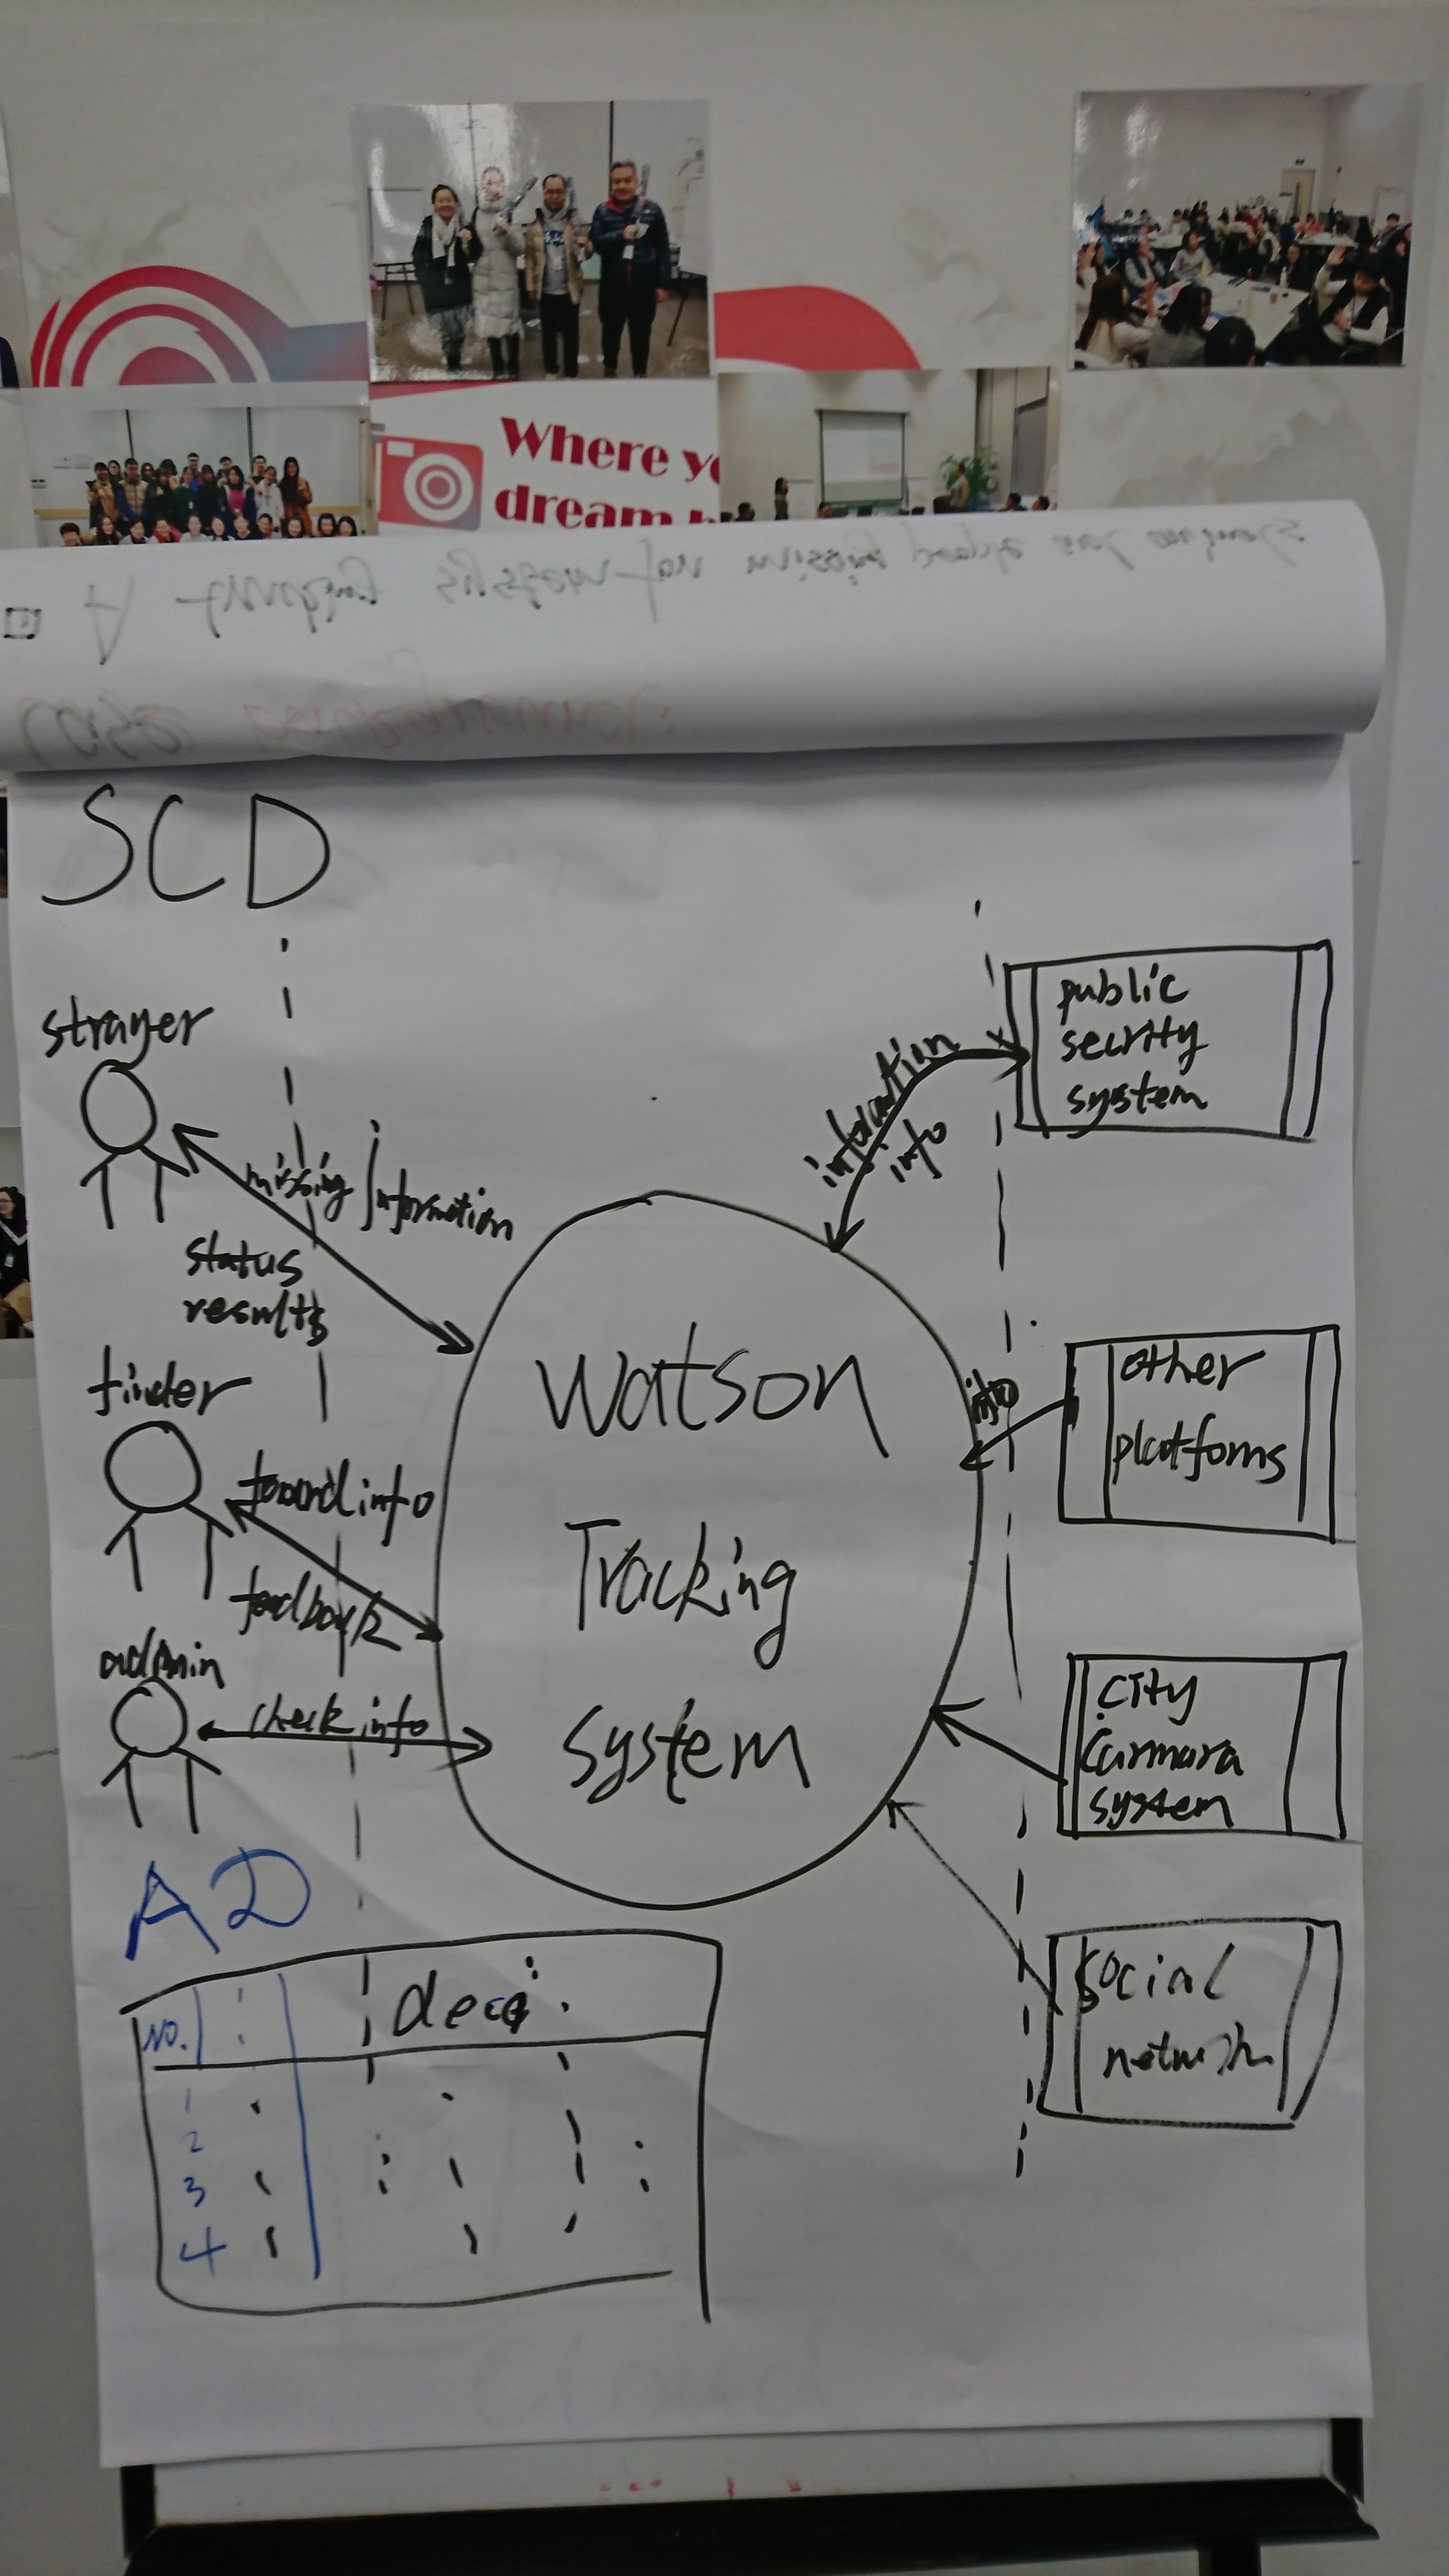 Where yo
dream
SCD
strayer
missing Information
status
results
finder
forward info
feedback
admin
check info
Watson
Tracking
System
information
info
public
secrity
system
info
other
platfoms
city
Carmara
system
social
network
AD
NO.
1
2
3
4